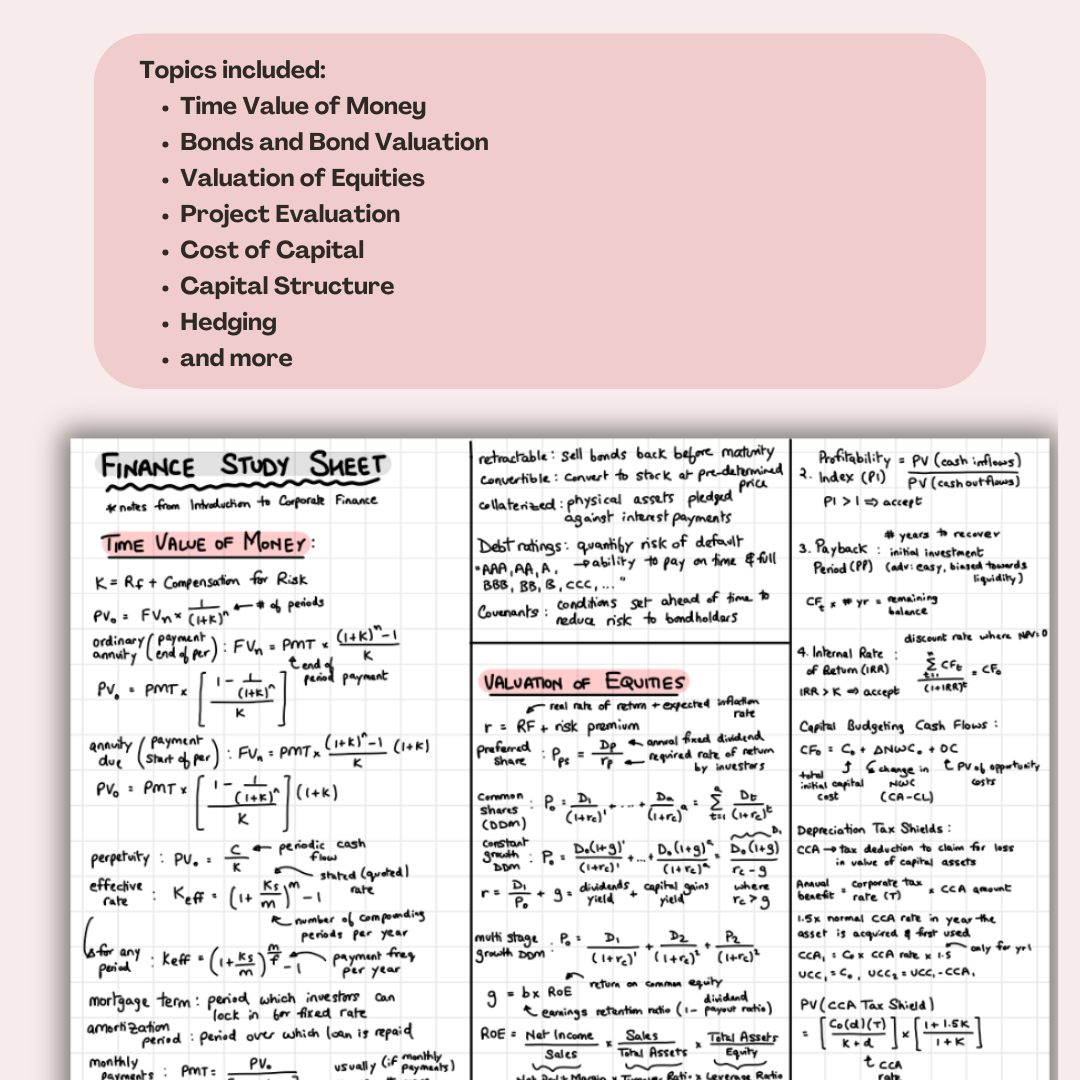 Topics included:
• Time Value of Money
• Bonds and Bond Valuation
• Valuation of Equities
• Project Evaluation
• Cost of Capital
• Capital Structure
• Hedging
• and more
FINANCE STUDY SHEET
* notes from Introduction to Corporate Finance
TIME VALUE OF MONEY:
K = Rf + Compensation for Risk
PV₀ = FVn × 1/(1+K)ⁿ ← # of periods
ordinary annuity (payment end of per) : FVn = PMT × ((1+K)ⁿ-1)/K
↑ end of period payment
PV₀ = PMT × [(1 - 1/(1+K)ⁿ)/K]
annuity due (payment start of per) : FVn = PMT × ((1+K)ⁿ-1)/K (1+K)
PV₀ = PMT × [(1 - 1/(1+K)ⁿ)/K] (1+K)
perpetuity : PV₀ = C/K ← periodic cash flow
effective rate : Keff = (1 + Ks/m)ᵐ - 1
stated (quoted) rate
number of compounding periods per year
↳ for any period : Keff = (1 + Ks/m)^(m/f) - 1 ← payment freq per year
mortgage term : period which investors can
lock in for fixed rate
amortization period : period over which loan is repaid
monthly payments : PMT = PV₀
usually (if monthly payments)
retractable : sell bonds back before maturity
Convertible : Convert to stock at pre-determined price
collaterized : physical assets pledged
against interest payments
Debt ratings : quantify risk of default
"AAA, AA, A, → ability to pay on time & full
BBB, BB, B, CCC, ..."
Covenants : conditions set ahead of time to
reduce risk to bondholders
VALUATION OF EQUITIES
real rate of return + expected inflation rate
r = RF + risk premium
preferred share : Pps = Dp/rp ← annual fixed dividend
← required rate of return by investors
Common Shares (DDM) : P₀ = D₁/(1+rc)¹ + ... + Dn/(1+rc)ⁿ = Σ t=1 n Dt/(1+rc)ᵗ
constant growth DDM : P₀ = D₀(1+g)¹/(1+rc)¹ + ... + D₀(1+g)ⁿ/(1+rc)ⁿ = D₀(1+g)/(rc-g)
D₁
r = D₁/P₀ + g = dividends yield + capital gains yield
where rc > g
multi stage growth DDM : P₀ = D₁/(1+rc)¹ + D₂/(1+rc)² + P₂/(1+rc)²
g = b × RoE ← return on common equity
↑ earnings retention ratio (1 - dividend payout ratio)
RoE = Net Income/Sales × Sales/Total Assets × Total Assets/Equity
Net Profit Margin × Turnover Ratio × Leverage Ratio
2. Profitability Index (PI) = PV (cash inflows)/PV (cash outflows)
PI > 1 ⇒ accept
3. Payback Period (PP) : # years to recover initial investment
(adv: easy, biased towards liquidity)
CFt × # yr = remaining balance
discount rate where NPV=0
4. Internal Rate of Return (IRR) : Σ t=1 n CFt/(1+IRR)ᵗ = CF₀
IRR > K ⇒ accept
Capital Budgeting Cash Flows :
CF₀ = C₀ + ΔNWC₀ + OC
total initial capital cost
change in NWC (CA-CL)
PV of opportunity costs
Depreciation Tax Shields :
CCA → tax deduction to claim for loss
in value of capital assets
Annual benefit = corporate tax rate (T) × CCA amount
1.5x normal CCA rate in year the
asset is acquired & first used
CCA₁ = C₀ × CCA rate × 1.5 ← only for yr 1
UCC₁ = C₀, UCC₂ = UCC₁ - CCA₁
PV (CCA Tax Shield)
= [C₀(d)(T)/(K+d)] × [(1+1.5K)/(1+K)]
↑ CCA rate